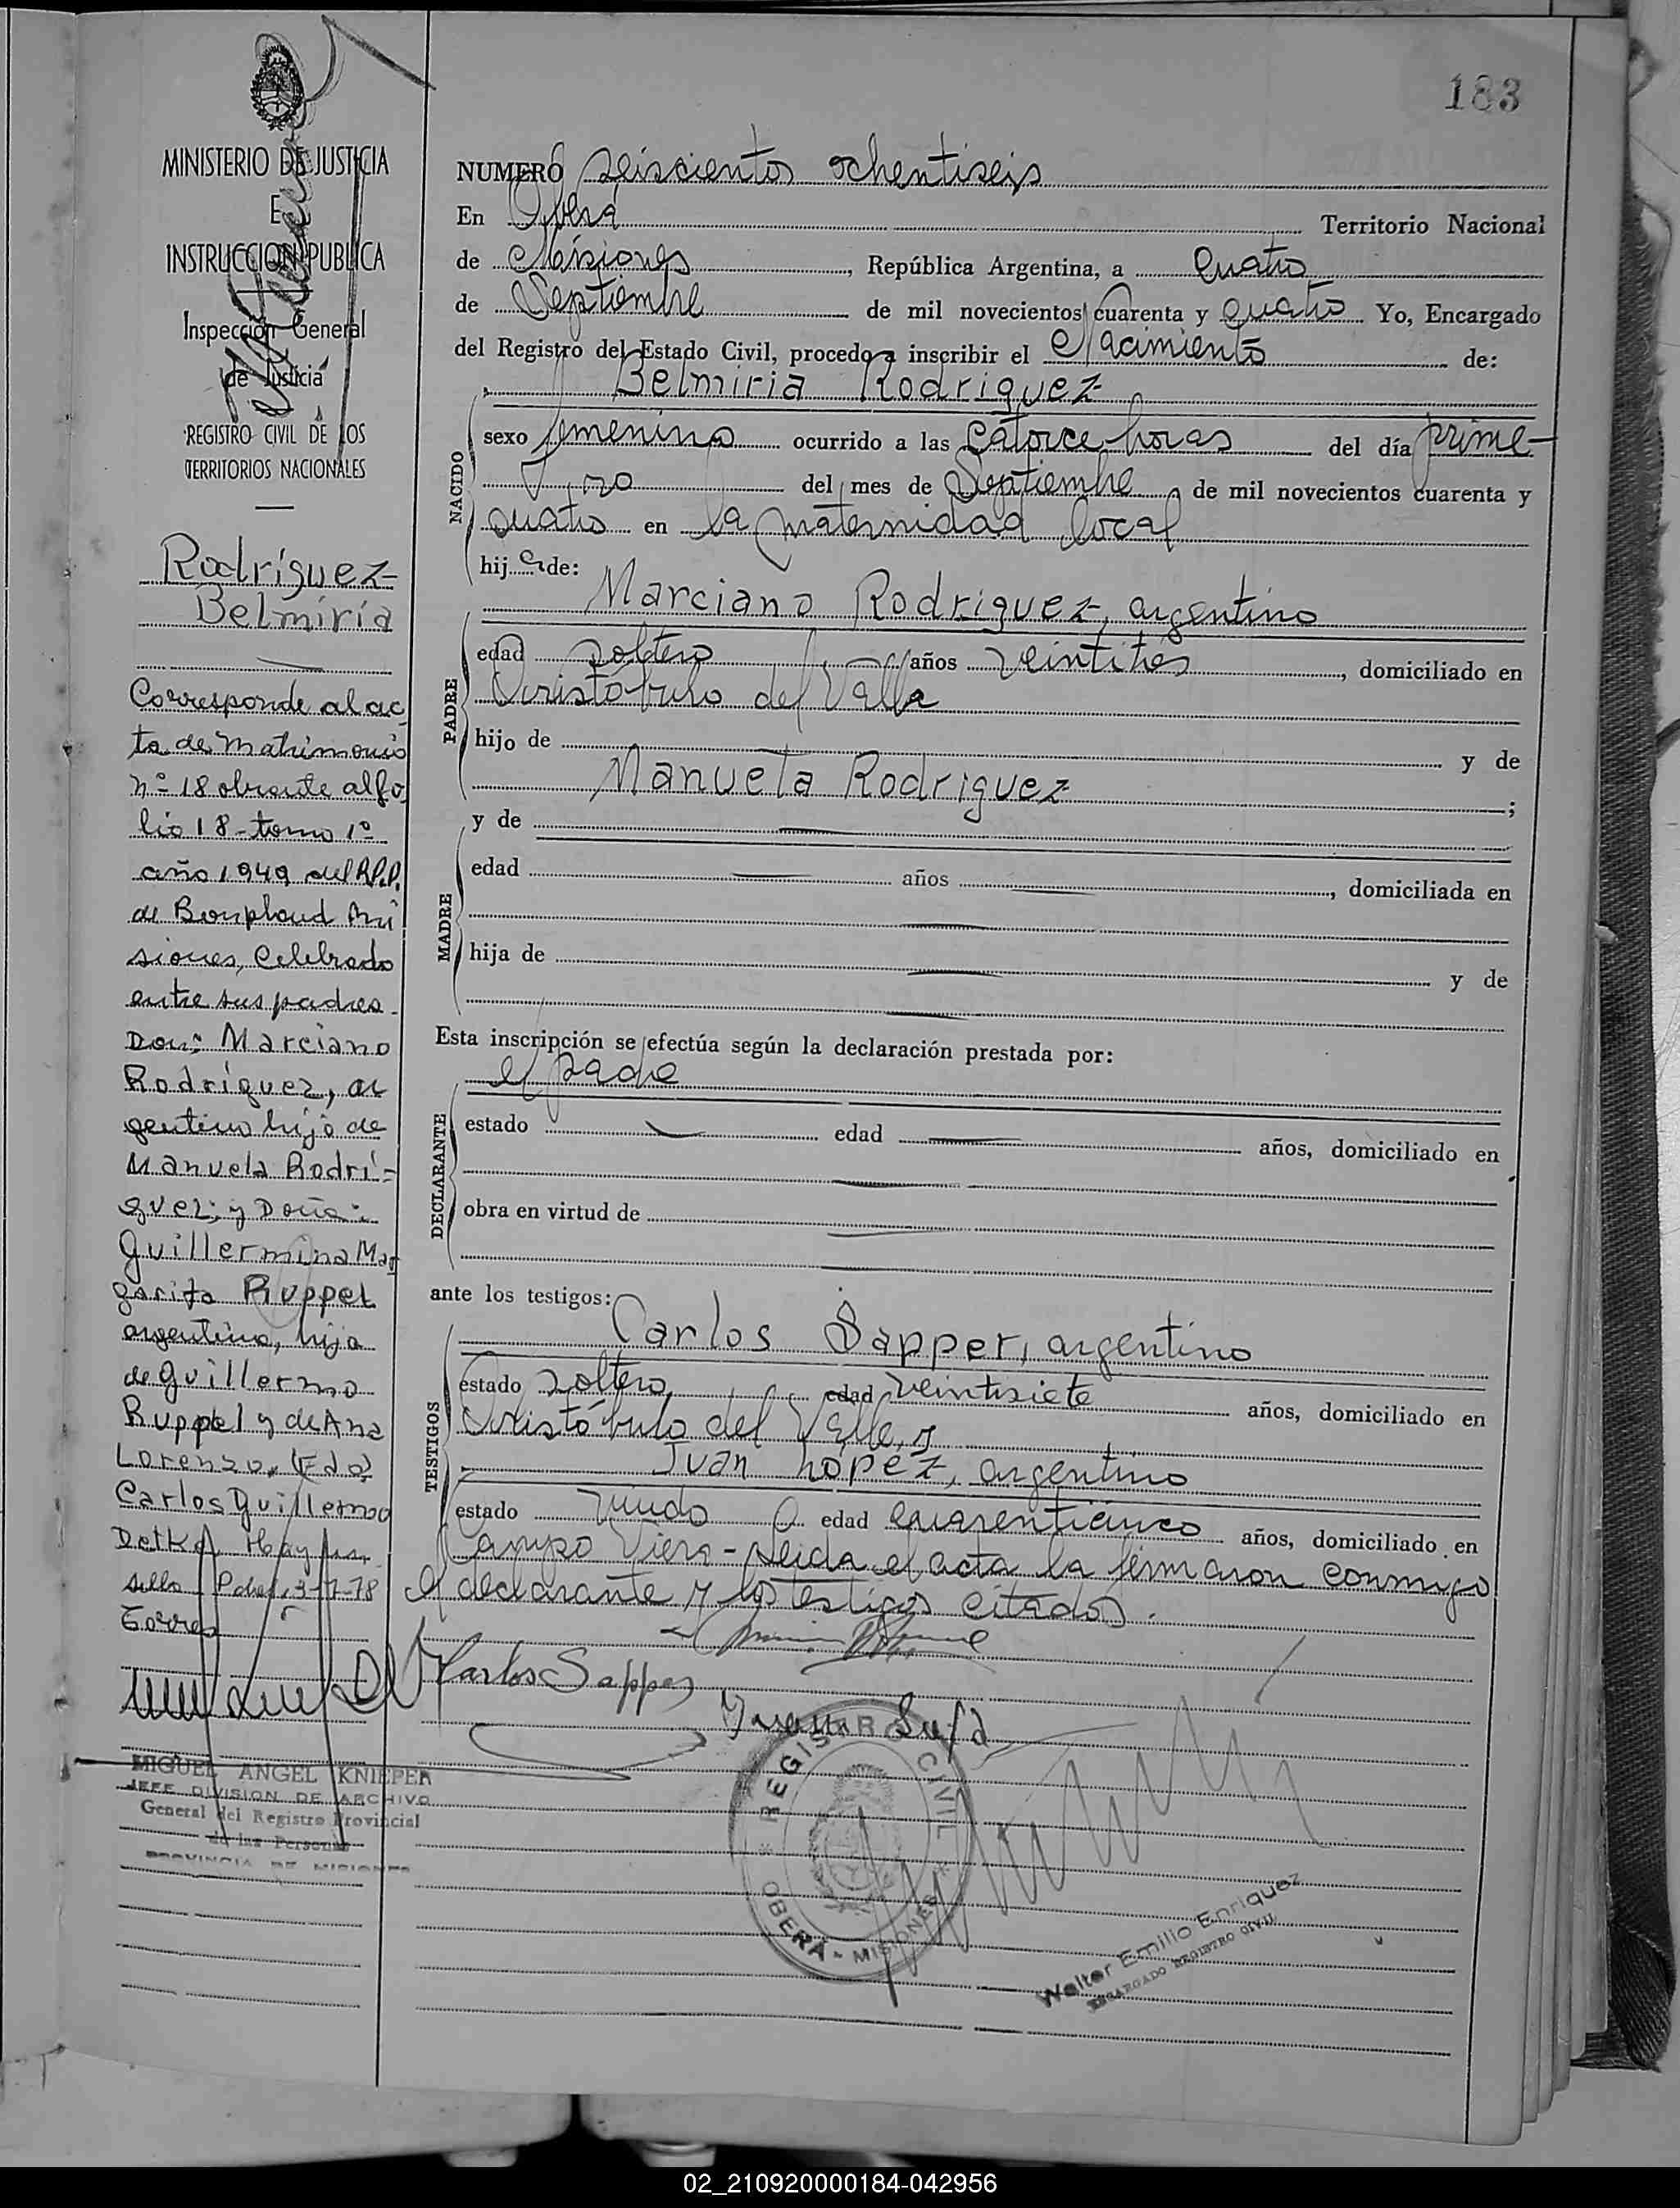 183
MINISTERIO DE JUSTICIA
E
INSTRUCCION PUBLICA
Inspección General
de Justicia
REGISTRO CIVIL DE LOS
TERRITORIOS NACIONALES
Rodríguez
Belmiria
Corresponde al ac
ta de Matrimonio
nº 18 obrante al fo
lio 18 - tomo 1º
año 1949 del R.P.P.
de Bonpland Mi
siones, Celebrado
entre sus padres
Don: Marciano
Rodríguez, ar
gentino hijo de
Manuela Rodrí-
guez; y Doña:
Guillermina Mar
garita Ruppel
argentina, hija
de Guillermo
Ruppel y de Ana
Lorenzo. (Fdo)
Carlos Guillermo
Detkof Hay un
sello Pdas, 3-7-78
Torres
MIGUEL ANGEL KNIEPER
JEFE DIVISION DE ARCHIVO
General del Registro Provincial
de las Personas
PROVINCIA DE MISIONES
NUMERO seiscientos ochentiseis
En Oberá Territorio Nacional
de Misiones, República Argentina, a cuatro
de Septiembre de mil novecientos cuarenta y cuatro Yo, Encargado
del Registro del Estado Civil, procedo a inscribir el Nacimiento de:
Belmiria Rodriguez
NACIDO
sexo femenino ocurrido a las catorce horas del día prime-
ro del mes de Septiembre de mil novecientos cuarenta y
cuatro en la maternidad local
hija de:
Marciano Rodriguez, argentino
PADRE
edad soltero años veintitres, domiciliado en
Aristóbulo del Valle
hijo de y de
Manuela Rodriguez ;
y de
MADRE
edad años , domiciliada en
hija de y de
Esta inscripción se efectúa según la declaración prestada por:
el padre
DECLARANTE
estado edad años, domiciliado en
obra en virtud de
ante los testigos:
Carlos Sapper, argentino
TESTIGOS
estado soltero edad veintisiete años, domiciliado en
Aristóbulo del Valle, y
Juan López, argentino
estado viudo edad cuarenticinco años, domiciliado en
Campo Viera - Leida el acta la firmaron conmigo
el declarante y los testigos citados.
Carlos Sapper
Juan
REGISTRO CIVIL
OBERÁ - MISIONES
Walter Emilio Enriquez
ENCARGADO REGISTRO CIVIL
02_210920000184-042956